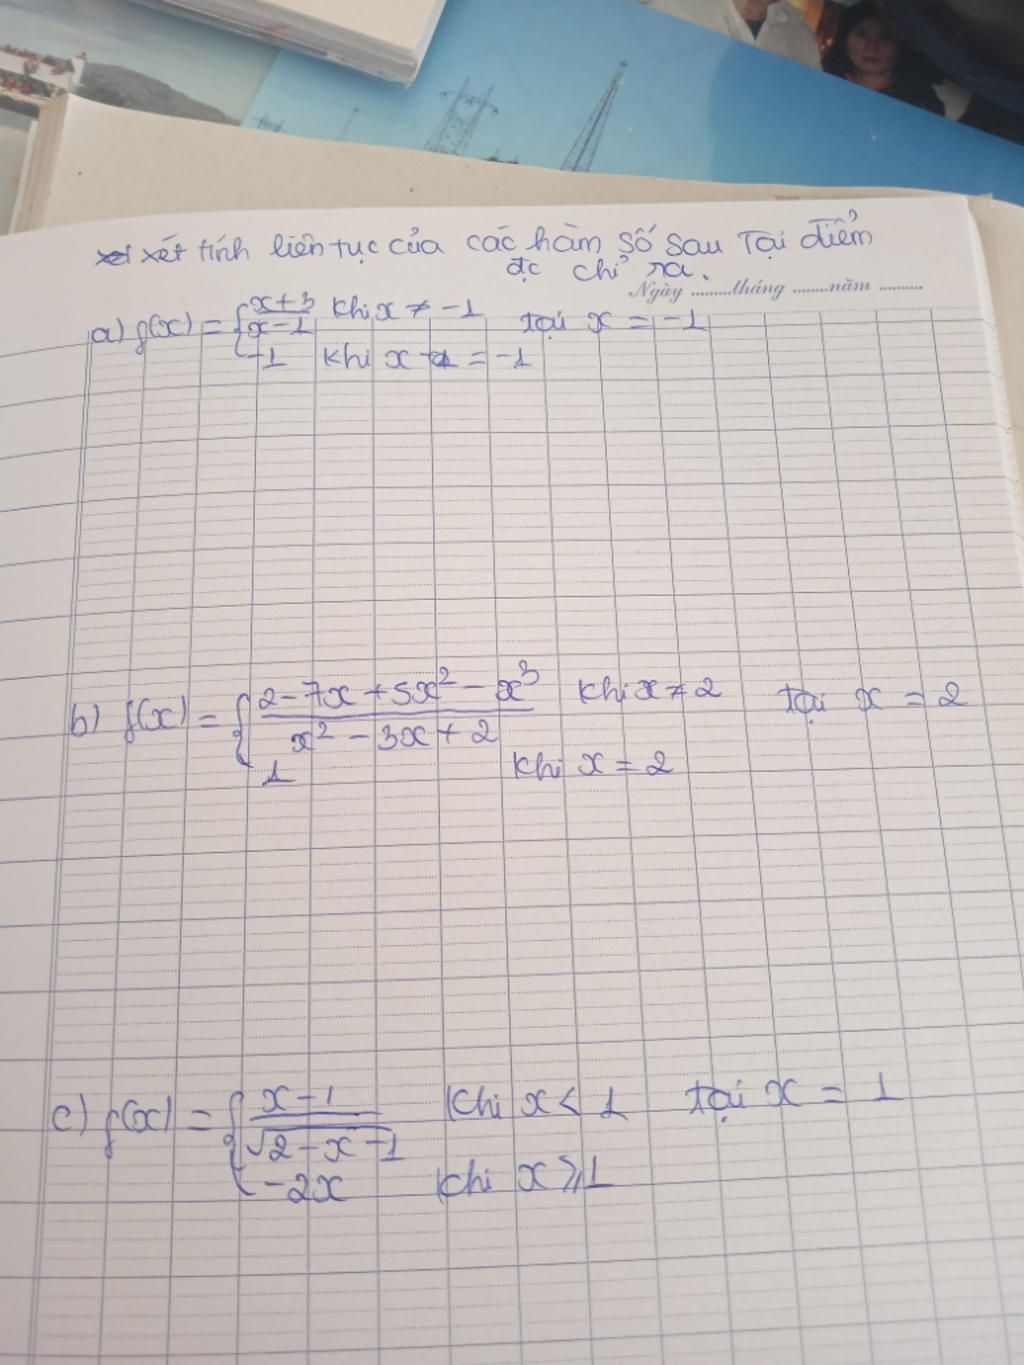 xét tính liên tục của các hàm số sau Tại điểm
đc chỉ ra.
Ngày ......... tháng ........ năm ..........
a) f(x) = { x+3 / x-1 khi x ≠ -1 tại x = -1
-1 khi x = -1
b) f(x) = { 2-7x+5x²-x³ / x²-3x+2 khi x ≠ 2 tại x = 2
1 khi x = 2
c) f(x) = { x-1 / √2-x-1 khi x < 1 tại x = 1
-2x khi x ⩾ 1